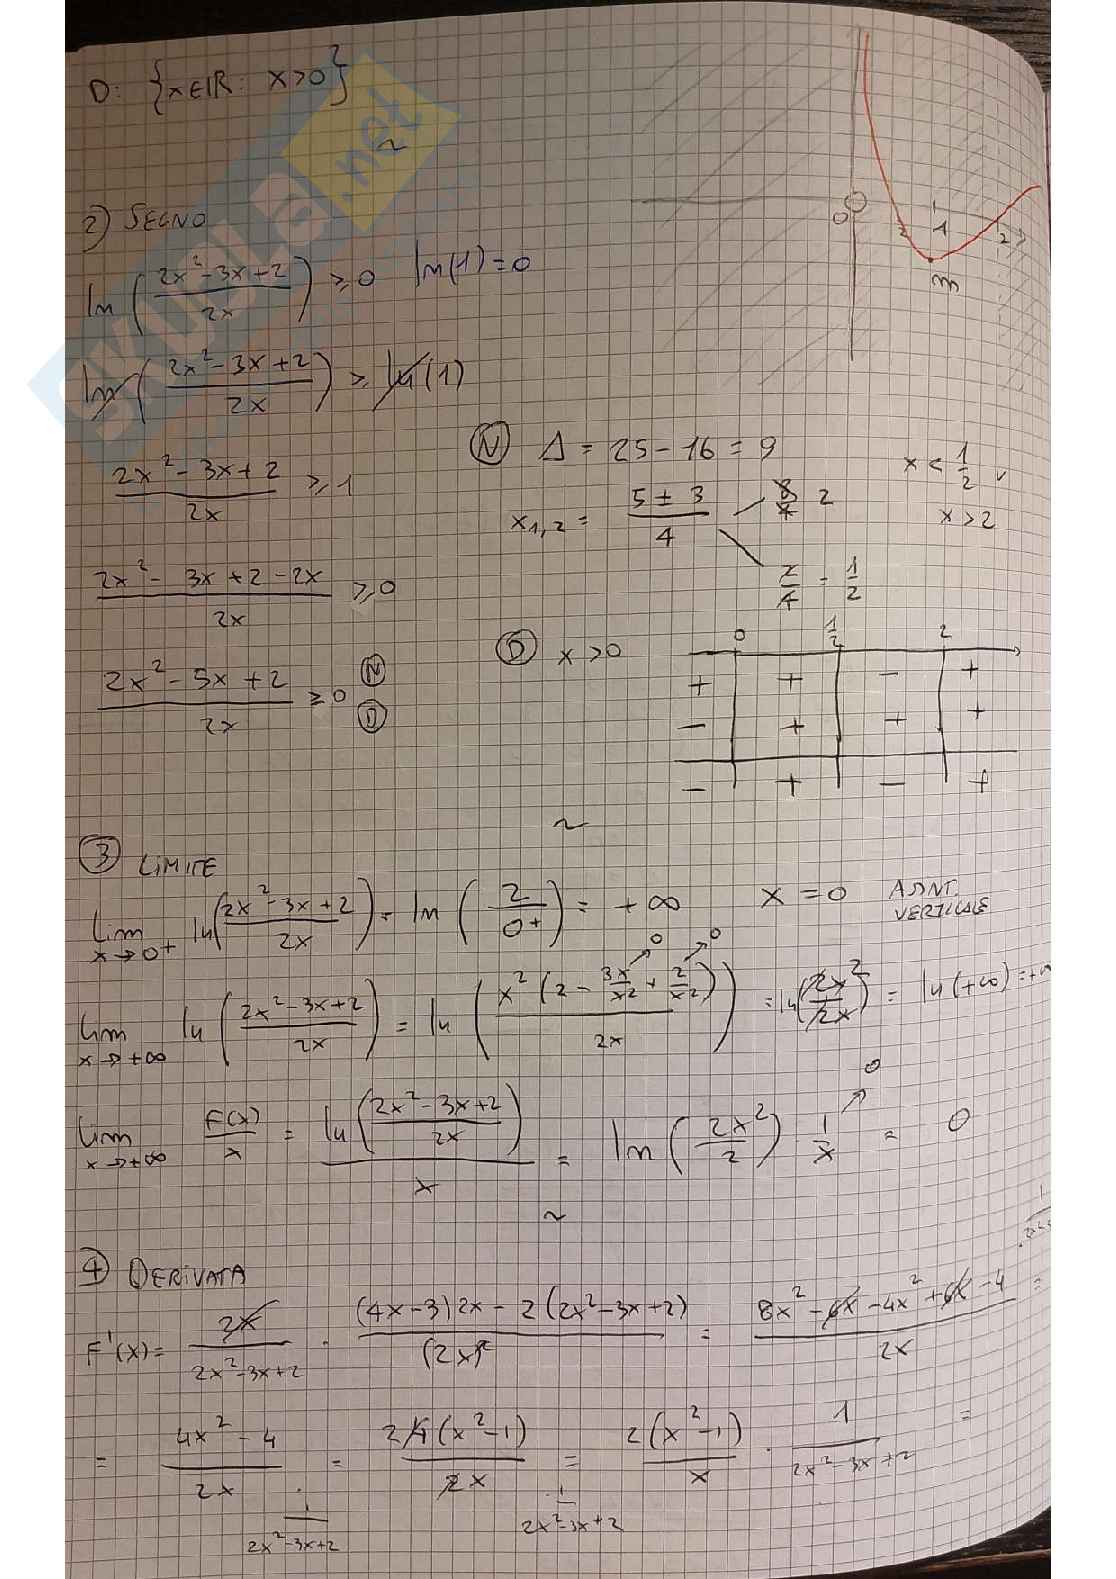 D: {x∈ℝ: x>0}
SKUOLA.net
~
0
1/2
1
2
m
2) SEGNO
ln((2x²-3x+2)/2x) ≥ 0   ln(1)=0
ln((2x²-3x+2)/2x) ≥ ln(1)
(2x²-3x+2)/2x ≥ 1
(2x²-3x+2-2x)/2x ≥ 0
(2x²-5x+2)/2x ≥ 0   (N) (D)
(N) Δ = 25-16 = 9
x1,2 = (5±3)/4   8/4 2   x < 1/2
2/4 = 1/2   x > 2
(D) x>0
0   1/2   2
+   +   -   +
-   +   +   +
-   +   -   +
~
(3) LIMITE
lim x→0+ ln((2x²-3x+2)/2x) = ln(2/0+) = +∞   x=0 ASINT. VERTICALE
lim x→+∞ ln((2x²-3x+2)/2x) = ln((x²(2-3x/x²+2/x²))/2x) = ln(2x²/2x) = ln(+∞) = +∞
lim x→+∞ F(x)/x = ln((2x²-3x+2)/2x)/x = ln(2x²/2) 1/x = 0
~
(4) DERIVATA
F'(x) = 2x/(2x²-3x+2) · ((4x-3)2x-2(2x²-3x+2))/(2x)² = (8x²-6x-4x²+6x-4)/2x =
= (4x²-4)/2x · 1/(2x²-3x+2) = 2 4(x²-1)/2x · 1/(2x²-3x+2) = 2(x²-1)/x · 1/(2x²-3x+2) =